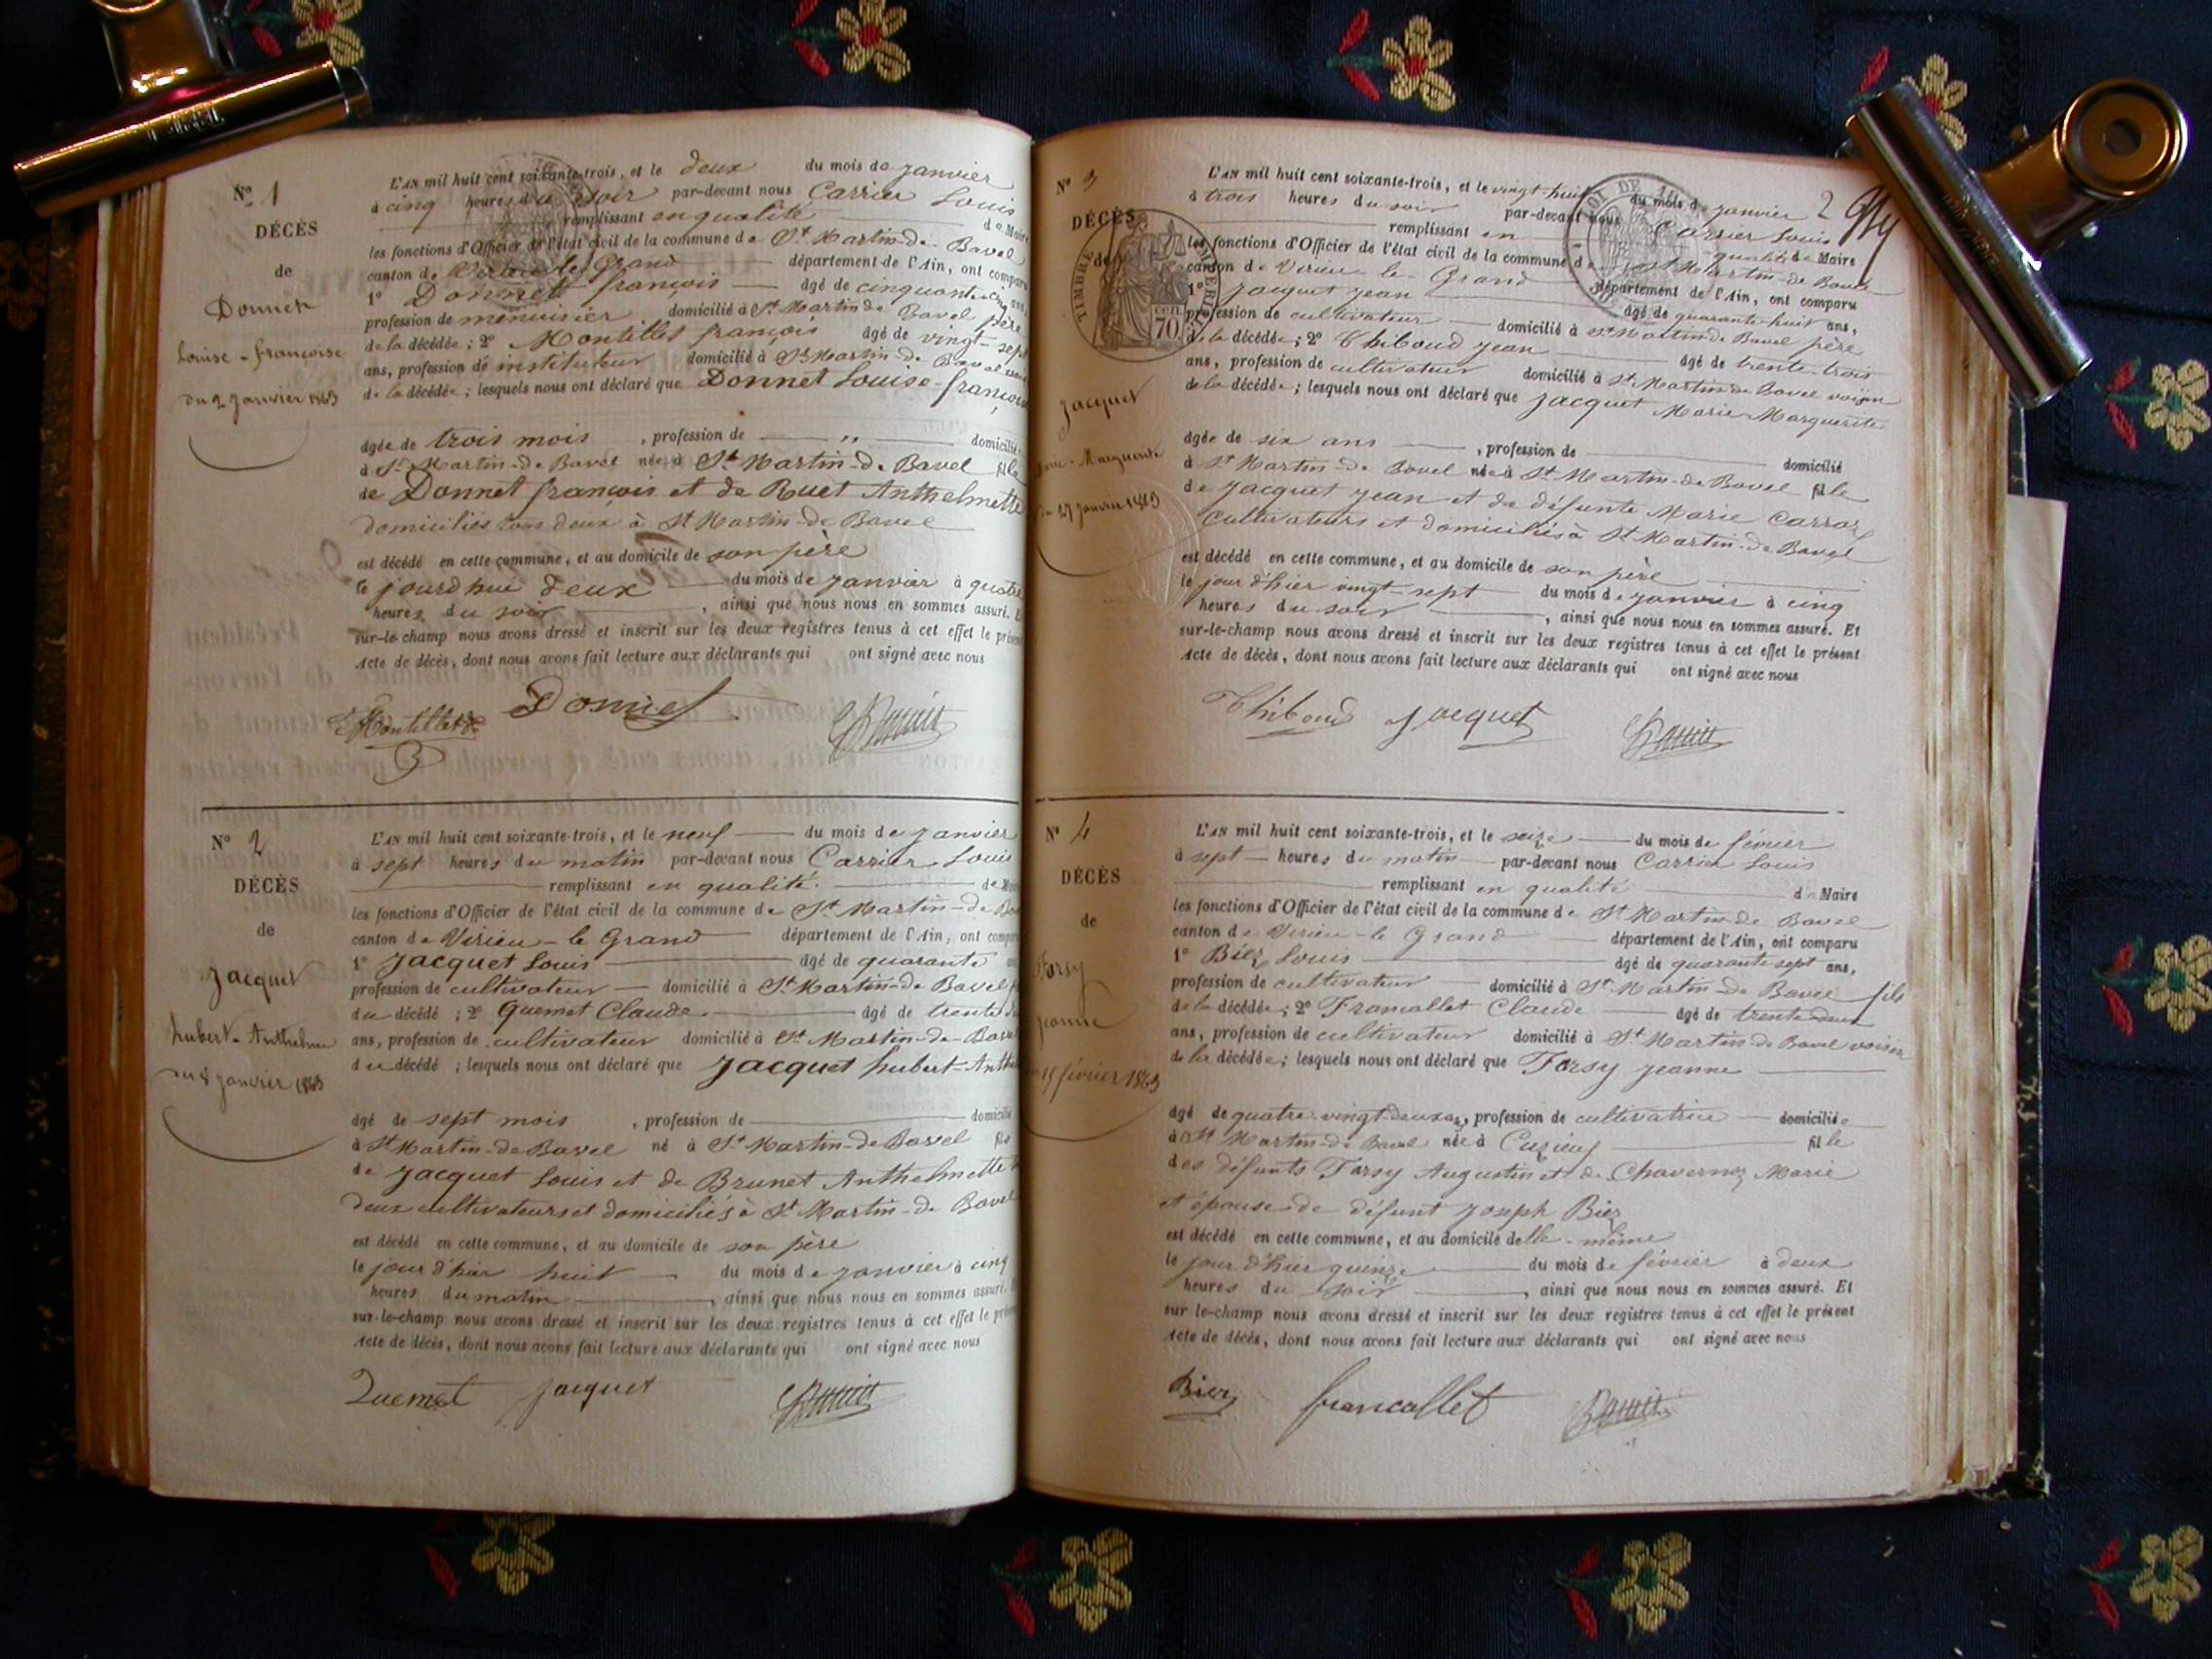 N° 1
DÉCÈS
de
Donnet
Louise-françoise
du 2 Janvier 1863
L'AN mil huit cent soixante-trois, et le deux du mois de janvier
à cinq heures du soir par-devant nous Carrier Louis
remplissant en qualité de Maire
les fonctions d'Officier de l'état civil de la commune de St Martin-de-Bavel
canton de Virieu le Grand département de l'Ain, ont comparu
1° Donnet françois âgé de cinquante-cinq ans,
profession de menuisier domicilié à St Martin de Bavel père
de la décédée; 2° Montillet françois âgé de vingt-sept
ans, profession de instituteur domicilié à St Martin-de Bavel
de la décédée; lesquels nous ont déclaré que Donnet Louise-françoise
âgée de trois mois, profession de „ domiciliée
à St Martin-de Bavel née à St Martin-de Bavel fille
de Donnet françois et de Ruet Anthelmette
domiciliés tous deux à St Martin-de Bavel
est décédé en cette commune, et au domicile de son père
le jourd'hui deux du mois de janvier à quatre
heures du soir, ainsi que nous nous en sommes assuré. Et
sur-le-champ nous avons dressé et inscrit sur les deux registres tenus à cet effet le présent
Acte de décès, dont nous avons fait lecture aux déclarants qui ont signé avec nous
Montillet Donnet
N° 2
DÉCÈS
de
Jacquet
hubert-Anthelme
du 8 janvier 1863
L'AN mil huit cent soixante-trois, et le neuf du mois de janvier
à sept heures du matin par-devant nous Carrier Louis
remplissant en qualité de Maire
les fonctions d'Officier de l'état civil de la commune de St Martin-de Bavel
canton de Virieu-le Grand département de l'Ain, ont comparu
1° Jacquet Louis âgé de quarante
profession de cultivateur domicilié à St Martin-de Bavel
du décédé; 2° Quemet Claude âgé de trente
ans, profession de cultivateur domicilié à St Martin-de-Bavel
du décédé; lesquels nous ont déclaré que Jacquet hubert-Anth
âgé de sept mois, profession de domicilié
à St Martin-de Bavel né à St Martin-de Bavel fils
de Jacquet Louis et de Brunet Anthelmette
deux cultivateurs et domiciliés à St Martin-de Bavel
est décédé en cette commune, et au domicile de son père
le jour d'hier huit du mois de janvier à cinq
heures du matin, ainsi que nous nous en sommes assuré.
sur-le-champ nous avons dressé et inscrit sur les deux registres tenus à cet effet le présent
Acte de décès, dont nous avons fait lecture aux déclarants qui ont signé avec nous
Quemet Jacquet
2
N° 3
DÉCÈS
de
TIMBRE IMPERIAL
70
Jacquet
Marie-Marguerite
du 27 janvier 1863
L'AN mil huit cent soixante-trois, et le vingt-huit du mois de janvier
à trois heures du soir par-devant nous Carrier Louis
remplissant en qualité de Maire
les fonctions d'Officier de l'état civil de la commune de St Martin-de Bavel
canton de Virieu le Grand département de l'Ain, ont comparu
1° Jacquet Jean âgé de quarante-huit ans,
profession de cultivateur domicilié à St Martin de Bavel père
de la décédée; 2° Thiboud Jean âgé de trente-trois
ans, profession de cultivateur domicilié à St Martin-de Bavel voisin
de la décédée; lesquels nous ont déclaré que Jacquet Marie Marguerite
âgée de six ans, profession de domicilié
à St Martin-de Bavel née à St Martin-de Bavel fille
de Jacquet Jean et de défunte Marie Carraz
cultivateurs et domiciliés à St Martin-de Bavel
est décédé en cette commune, et au domicile de son père
le jour d'hier vingt-sept du mois de janvier à cinq
heures du soir, ainsi que nous nous en sommes assuré. Et
sur-le-champ nous avons dressé et inscrit sur les deux registres tenus à cet effet le présent
Acte de décès, dont nous avons fait lecture aux déclarants qui ont signé avec nous
Thiboud Jacquet
N° 4
DÉCÈS
de
Forsy
Jeanne
du 15 février 1863
L'AN mil huit cent soixante-trois, et le seize du mois de février
à sept heures du matin par-devant nous Carrier Louis
remplissant en qualité de Maire
les fonctions d'Officier de l'état civil de la commune de St Martin-de Bavel
canton de Virieu-le Grand département de l'Ain, ont comparu
1° Biez Louis âgé de quarante sept ans,
profession de cultivateur domicilié à St Martin-de Bavel fils
de la décédée; 2° Francallet Claude âgé de trente-deux
ans, profession de cultivateur domicilié à St Martin-de Bavel voisin
de la décédée; lesquels nous ont déclaré que Forsy Jeanne
âgé de quatre-vingt-deux ans, profession de cultivatrice domiciliée
à St Martin-de Bavel née à Cuzieu fille
des défunts Forsy Augustin et de Chavernoz Marie
et épouse de défunt Joseph Biez
est décédé en cette commune, et au domicile d'elle-même
le jour d'hier quinze du mois de février à deux
heures du soir, ainsi que nous nous en sommes assuré. Et
sur-le-champ nous avons dressé et inscrit sur les deux registres tenus à cet effet le présent
Acte de décès, dont nous avons fait lecture aux déclarants qui ont signé avec nous
Biez francallet